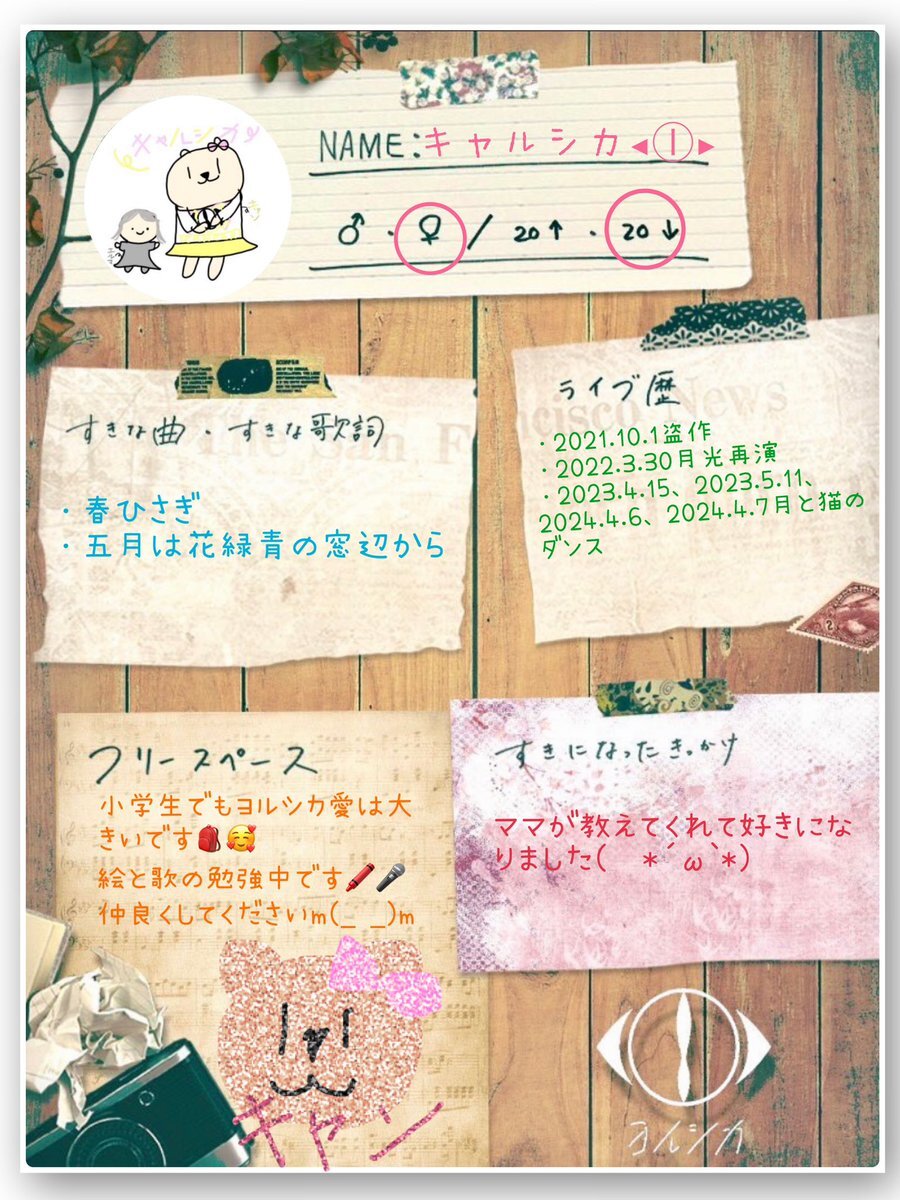 キャルシカ
NAME:キャルシカ◀①▶
♂・♀/20↑・20↓
すきな曲・すきな歌詞
・春ひさぎ
・五月は花緑青の窓辺から
ライブ歴
・2021.10.1盗作
・2022.3.30月光再演
・2023.4.15、2023.5.11、
2024.4.6、2024.4.7月と猫の
ダンス
フリースペース
小学生でもヨルシカ愛は大
きいです🎒🥰
絵と歌の勉強中です🖍️🎤
仲良くしてくださいm(_ _)m
キャン
すきになったきっかけ
ママが教えてくれて好きにな
りました( *´ω`*)
ヨルシカ